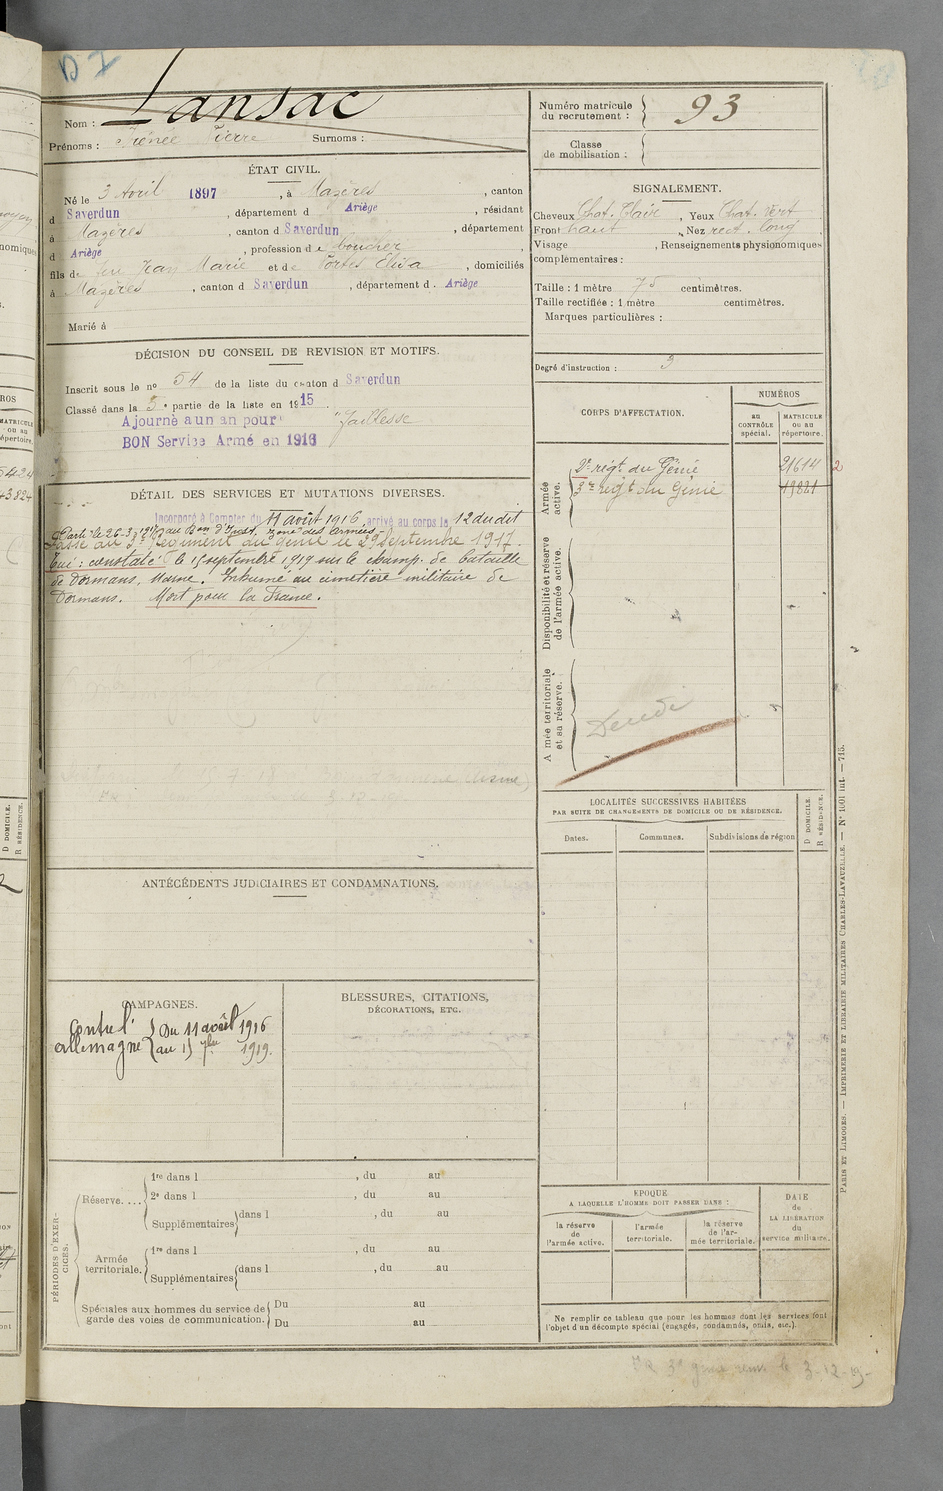 D I
Nom : Lansac
Prénoms : Irénée Pierre Surnoms :
Numéro matricule du recrutement : 93
Classe de mobilisation :
ÉTAT CIVIL.
Né le 3 Avril 1897, à Mazères, canton
d Saverdun, département d Ariège, résidant
à Mazères, canton d Saverdun, département
d Ariège, profession de boucher
fils de feu Jean Marie et de Portes Elisa, domiciliés
à Mazères, canton d Saverdun, département d. Ariège
Marié à
SIGNALEMENT.
Cheveux Chat. Clair, Yeux Chat. Vert
Front haut, Nez rect. long,
Visage, Renseignements physionomiques
complémentaires :
Taille : 1 mètre 75 centimètres.
Taille rectifiée : 1 mètre centimètres.
Marques particulières :
Degré d'instruction : 3
DÉCISION DU CONSEIL DE REVISION ET MOTIFS.
Inscrit sous le n° 54 de la liste du canton d Saverdun
Classé dans la 5e partie de la liste en 1915.
Ajourné a un an pour "faiblesse
BON Service Armé en 1916
DÉTAIL DES SERVICES ET MUTATIONS DIVERSES.
Incorporé à Compter du 11 août 1916 arrivé au corps le 12 du dit
Parti le 26-3-1917 au Bon d'Inst. zone des Armées
Passé au 3e Régiment du génie le 29 Septembre 1917.
Tué : constaté le 15 septembre 1919 sur le champ de bataille
de Dormans, Marne. Inhumé au cimetière militaire de
Dormans. Mort pour la France.
CORPS D'AFFECTATION.
NUMÉROS
au CONTRÔLE spécial.
MATRICULE ou au répertoire.
Armée active.
2e régt. du Génie 21614 2
3e régt du Génie 19821
Disponibilité et réserve de l'armée active.
Armée territoriale et sa réserve.
LOCALITÉS SUCCESSIVES HABITÉES
PAR SUITE DE CHANGEMENTS DE DOMICILE OU DE RÉSIDENCE.
Dates. Communes. Subdivisions de région
D DOMICILE.
R RÉSIDENCE.
ANTÉCÉDENTS JUDICIAIRES ET CONDAMNATIONS.
CAMPAGNES.
Contre l' Du 11 août 1916
Allemagne au 15 7bre 1919.
BLESSURES, CITATIONS,
DÉCORATIONS, ETC.
PÉRIODES D'EXERCICES.
Réserve....
1re dans l, du au
2e dans l, du au
Supplémentaires dans l, du au
Armée territoriale.
1re dans l, du au
Supplémentaires dans l, du au
Spéciales aux hommes du service de Du au
garde des voies de communication. Du au
EPOQUE
A LAQUELLE L'HOMME DOIT PASSER DANS :
la réserve de l'armée active.
l'armée territoriale.
la réserve de l'armée territoriale.
DATE de LA LIBÉRATION du service militaire.
Ne remplir ce tableau que pour les hommes dont les services font
l'objet d'un décompte spécial (engagés, condamnés, omis, etc.).
PARIS ET LIMOGES. — IMPRIMERIE ET LIBRAIRIE MILITAIRES CHARLES-LAVAUZELLE. — N° 1001 int. — 715.